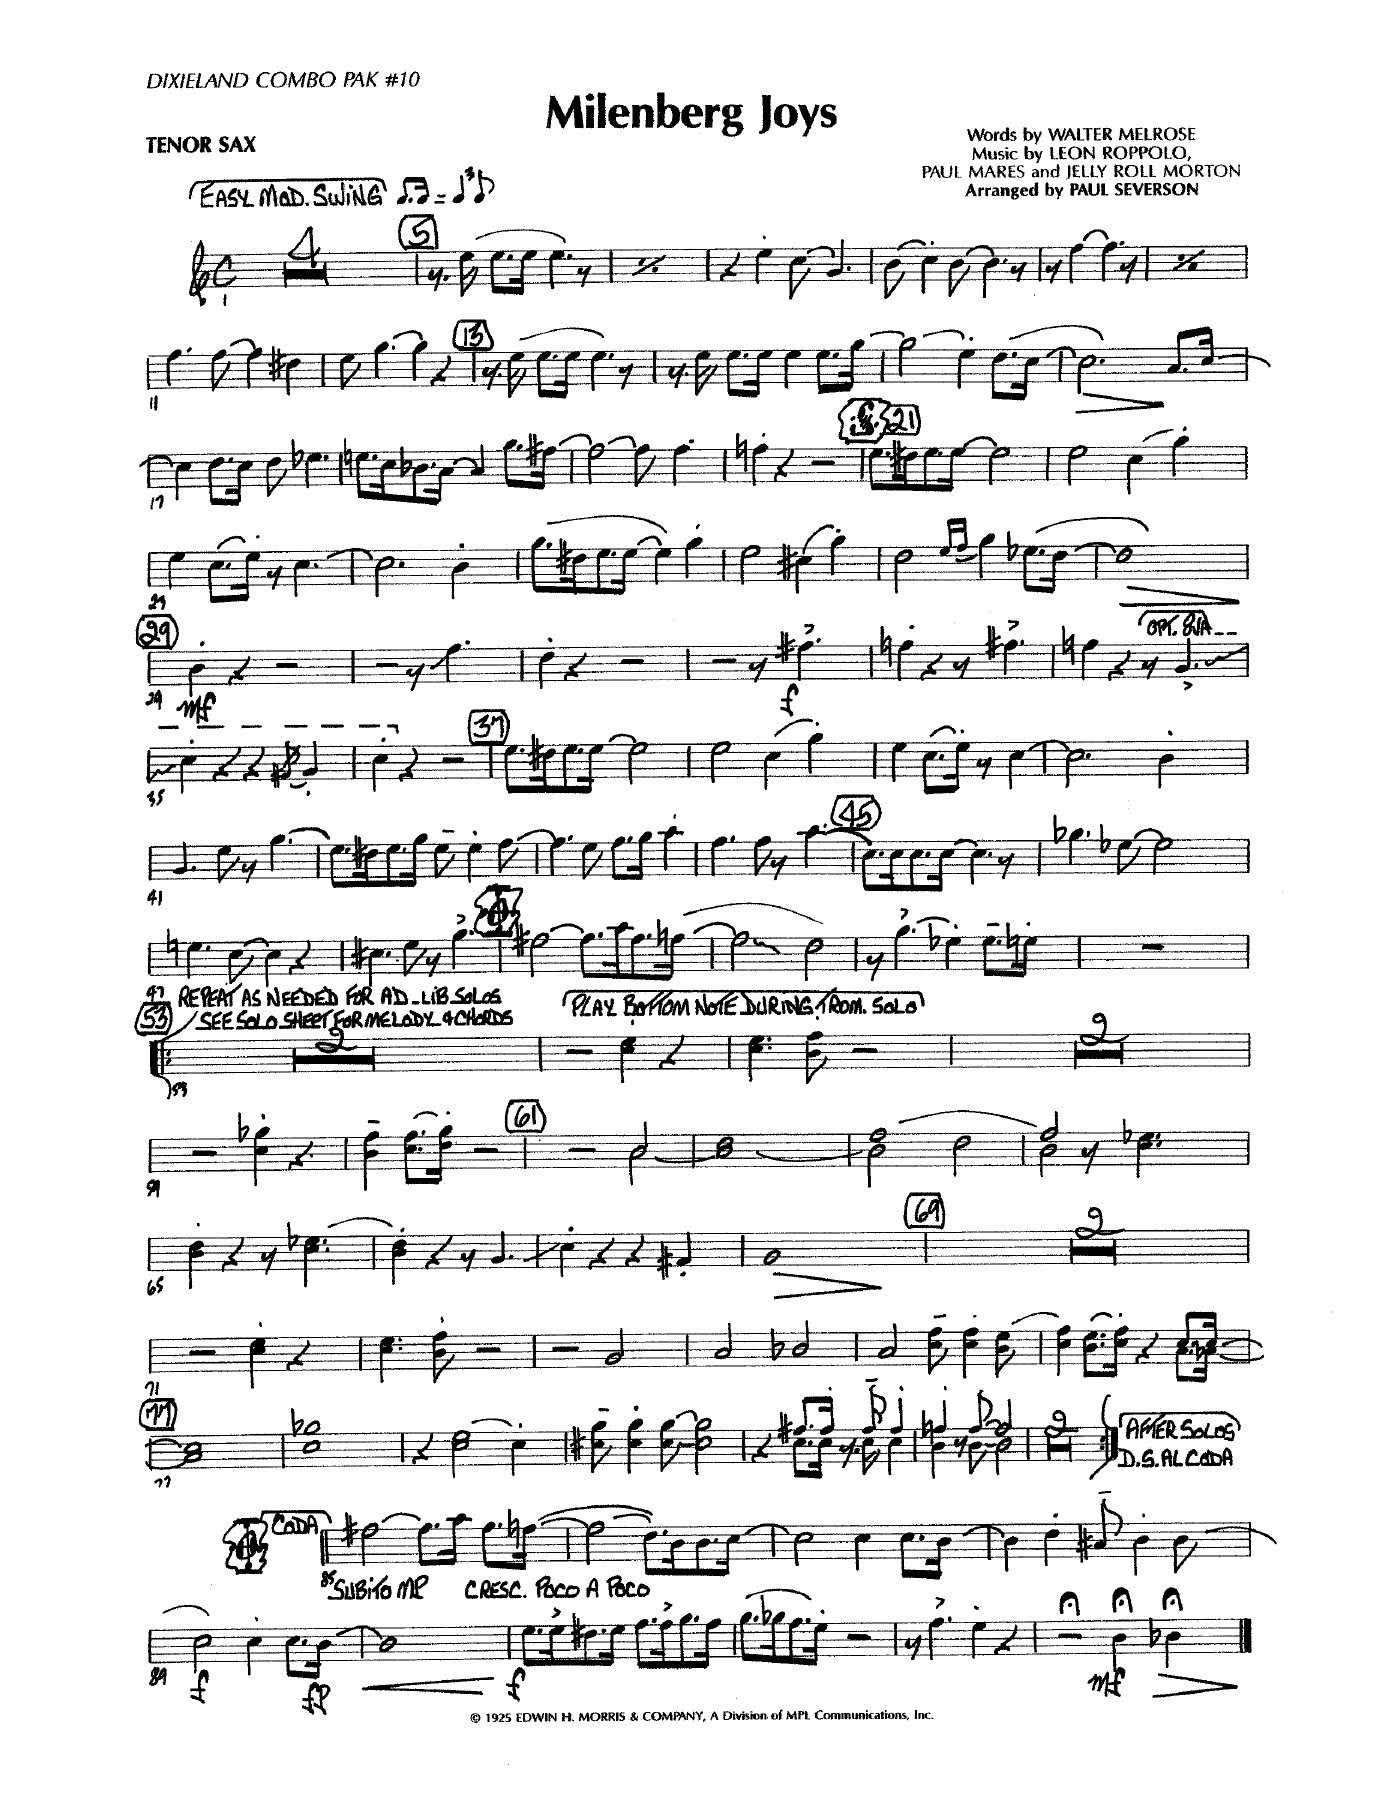 DIXIELAND COMBO PAK #10
Milenberg Joys
TENOR SAX
Words by WALTER MELROSE
Music by LEON ROPPOLO,
PAUL MARES and JELLY ROLL MORTON
Arranged by PAUL SEVERSON
EASY MOD. SWING
3
4
5
1
13
11
21
17
23
29
OPT. 8VA
29
mf
f
37
35
45
41
47
REPEAT AS NEEDED FOR AD-LIB SOLOS
PLAY BOTTOM NOTE DURING TROM. SOLO
53
SEE SOLO SHEET FOR MELODY & CHORDS
2
2
53
61
59
69
2
65
71
77
2
AFTER SOLOS
D.S. AL CODA
77
CODA
85
SUBITO MP
CRESC. POCO A POCO
89
f
fp
f
mf
© 1925 EDWIN H. MORRIS & COMPANY, A Division of MPL Communications, Inc.